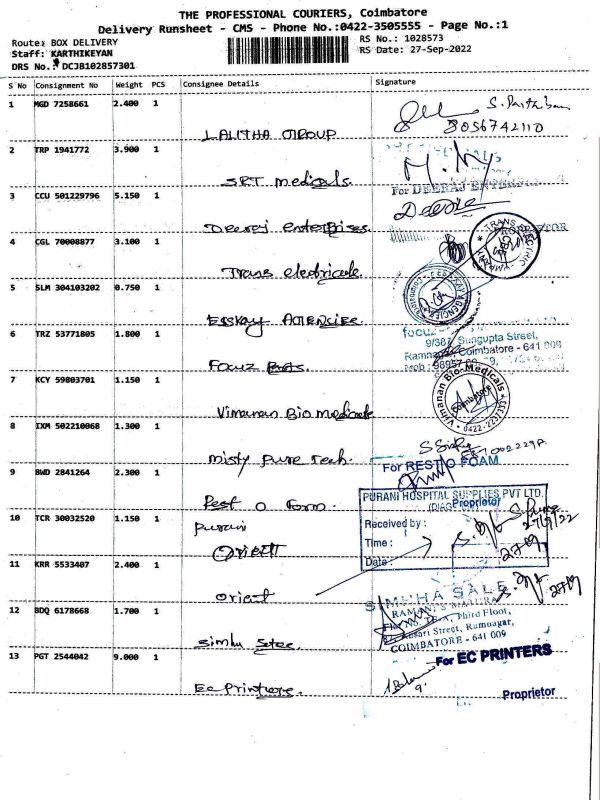 THE PROFESSIONAL COURIERS, Coimbatore
Delivery Runsheet - CMS - Phone No.:0422-3505555 - Page No.:1
Route: BOX DELIVERY
RS No.: 1028573
Staff: KARTHIKEYAN
RS Date: 27-Sep-2022
DRS No.: DCJB102857301
S No Consignment No Weight PCS Consignee Details Signature
1 MGD 7258661 2.400 1
8056742110
LALITHA GROUP
2 TRP 1941772 3.900 1
SRT medicals.
For DEERAJ
3 CCU 501229796 5.150 1
Deeraj enterprises.
PROPRIETOR
4 CGL 70008877 3.100 1
Trans electricals
5 SLM 304103202 0.750 1
ESSKAY AGENCIES.
6 TRZ 53771805 1.800 1
9/387, Sungupta Street,
Coimbatore - 641 009
Focuz
7 KCY 59803701 1.150 1
Vimanan Bio-Medicals
Coimbatore
Vimanan Bio medicals
8 IXM 502210068 1.300 1
misty pure tech.
For REST O FOAM
9 BWD 2841264 2.300 1
PURANI HOSPITAL SUPPLIES PVT LTD.
Proprietor
Rest O Form.
10 TCR 30032520 1.150 1
Purani
Received by :
27/9/22
Time :
27/9
Date :
11 KRR 5533407 2.400 1
Orient
27/9
12 BDQ 6178668 1.700 1
SIMHA SALE
Third Floor,
Street, Ramnagar,
COIMBATORE - 641 009
13 PGT 2544042 9.000 1
For EC PRINTERS
Ec Printers.
Proprietor